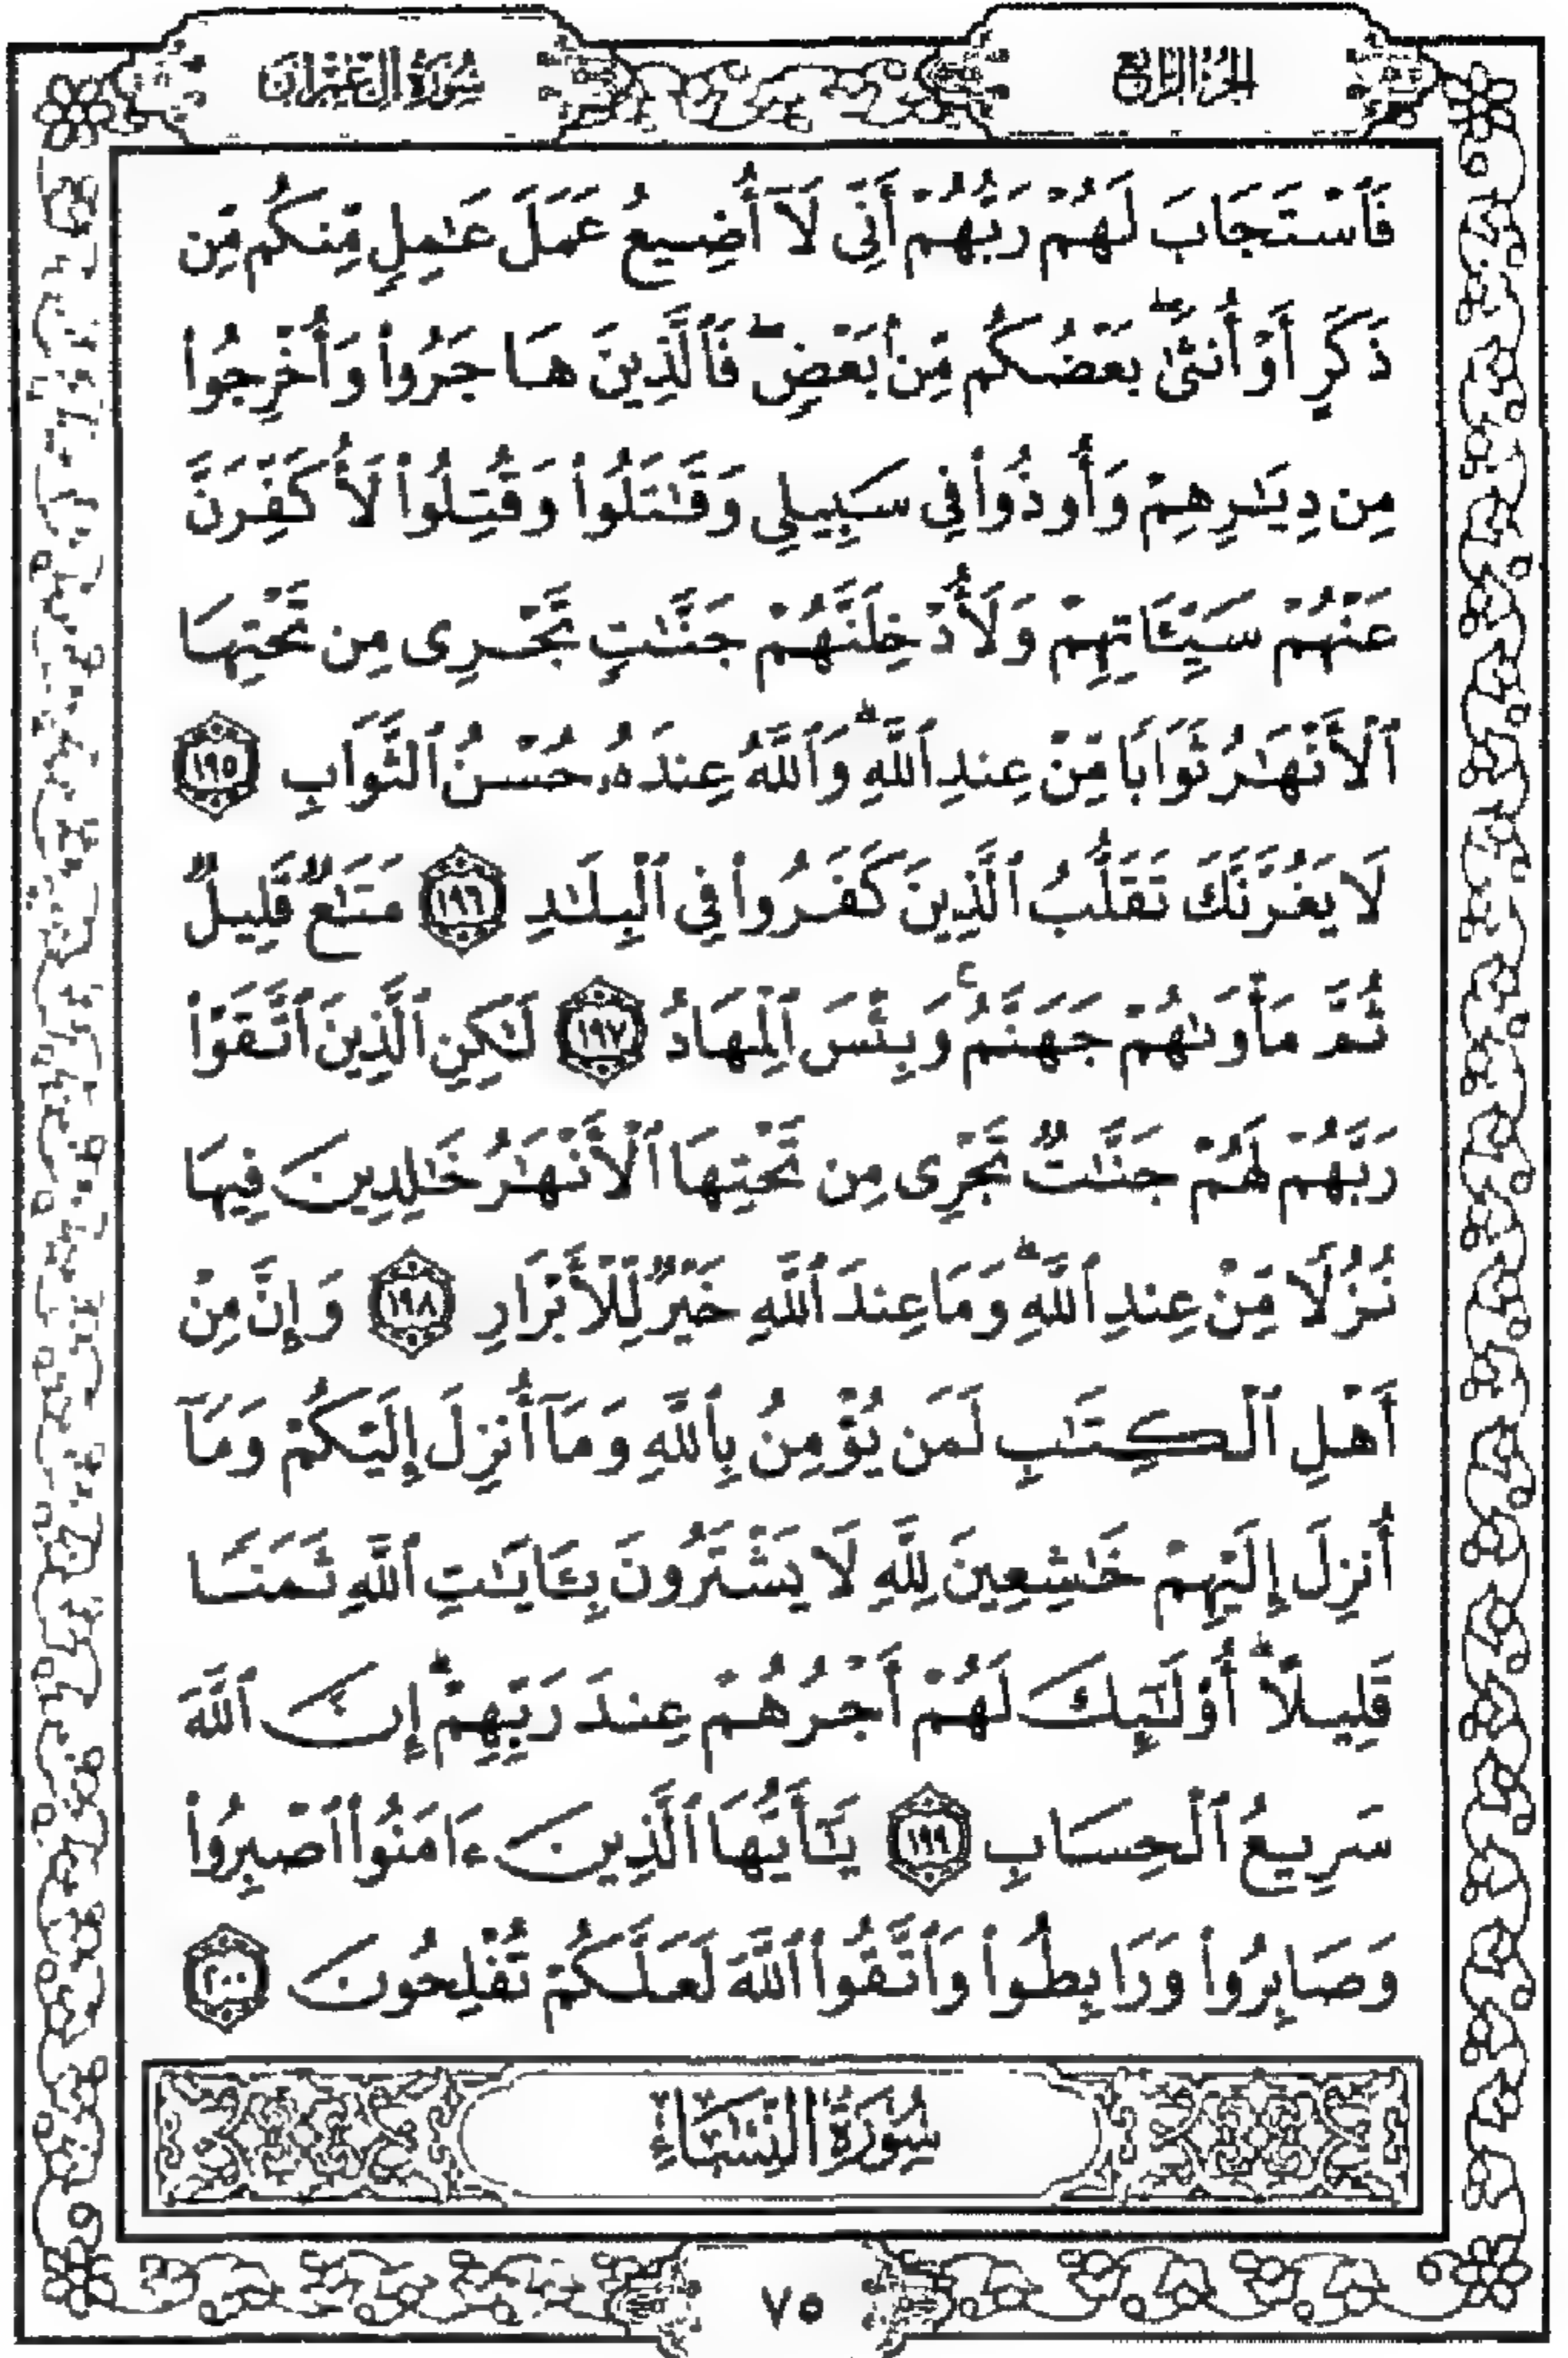 الجزء الرابع
سورة آل عمران
فَٱسْتَجَابَ لَهُمْ رَبُّهُمْ أَنِّى لَآ أُضِيعُ عَمَلَ عَـٰمِلٍ مِّنكُم مِّن
ذَكَرٍ أَوْ أُنثَىٰ ۖ بَعْضُكُم مِّنۢ بَعْضٍ ۖ فَٱلَّذِينَ هَاجَرُوا۟ وَأُخْرِجُوا۟
مِن دِيَـٰرِهِمْ وَأُوذُوا۟ فِى سَبِيلِى وَقَـٰتَلُوا۟ وَقُتِلُوا۟ لَأُكَفِّرَنَّ
عَنْهُمْ سَيِّـَٔاتِهِمْ وَلَأُدْخِلَنَّهُمْ جَنَّـٰتٍ تَجْرِى مِن تَحْتِهَا
ٱلْأَنْهَـٰرُ ثَوَابًا مِّنْ عِندِ ٱللَّهِ ۗ وَٱللَّهُ عِندَهُۥ حُسْنُ ٱلثَّوَابِ ١٩٥
لَا يَغُرَّنَّكَ تَقَلُّبُ ٱلَّذِينَ كَفَرُوا۟ فِى ٱلْبِلَـٰدِ ١٩٦ مَتَـٰعٌ قَلِيلٌ
ثُمَّ مَأْوَىٰهُمْ جَهَنَّمُ ۚ وَبِئْسَ ٱلْمِهَادُ ١٩٧ لَـٰكِنِ ٱلَّذِينَ ٱتَّقَوْا۟
رَبَّهُمْ لَهُمْ جَنَّـٰتٌ تَجْرِى مِن تَحْتِهَا ٱلْأَنْهَـٰرُ خَـٰلِدِينَ فِيهَا
نُزُلًا مِّنْ عِندِ ٱللَّهِ ۗ وَمَا عِندَ ٱللَّهِ خَيْرٌ لِّلْأَبْرَارِ ١٩٨ وَإِنَّ مِنْ
أَهْلِ ٱلْكِتَـٰبِ لَمَن يُؤْمِنُ بِٱللَّهِ وَمَآ أُنزِلَ إِلَيْكُمْ وَمَآ
أُنزِلَ إِلَيْهِمْ خَـٰشِعِينَ لِلَّهِ لَا يَشْتَرُونَ بِـَٔايَـٰتِ ٱللَّهِ ثَمَنًا
قَلِيلًا ۗ أُو۟لَـٰٓئِكَ لَهُمْ أَجْرُهُمْ عِندَ رَبِّهِمْ ۗ إِنَّ ٱللَّهَ
سَرِيعُ ٱلْحِسَابِ ١٩٩ يَـٰٓأَيُّهَا ٱلَّذِينَ ءَامَنُوا۟ ٱصْبِرُوا۟
وَصَابِرُوا۟ وَرَابِطُوا۟ وَٱتَّقُوا۟ ٱللَّهَ لَعَلَّكُمْ تُفْلِحُونَ ٢٠٠
سُورَةُ النِّسَاءِ
٧٥